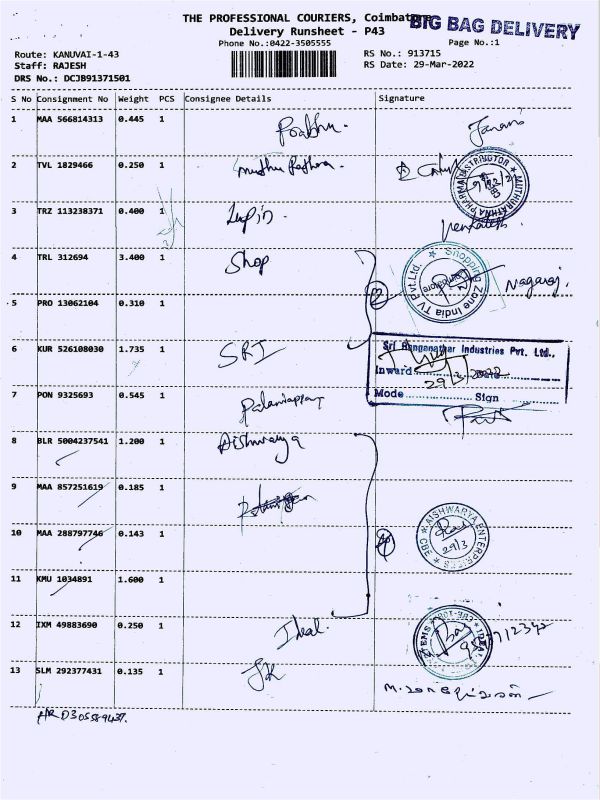 THE PROFESSIONAL COURIERS, Coimbatore
BIG BAG DELIVERY
Delivery Runsheet - P43
Phone No.:0422-3505555
Page No.:1
Route: KANUVAI-1-43
RS No.: 913715
Staff: RAJESH
RS Date: 29-Mar-2022
DRS No.: DCJB91371501
S No Consignment No Weight PCS Consignee Details Signature
1 MAA 566814313 0.445 1 Prabhu.
2 TVL 1829466 0.250 1
MUTHURATHNA PHARMA DISTRIBUTOR
3 TRZ 113238371 0.400 1 Lupin.
Venkatesh.
4 TRL 312694 3.400 1 Shop
Shopping Zone India TV Pvt.Ltd. Coimbatore
Nagaraj.
5 PRO 13062104 0.310 1
6 KUR 526108030 1.735 1 SRI
Sri Ranganathar Industries Pvt. Ltd.,
Inward
29/3/2022
Mode Sign
7 PON 9325693 0.545 1 Palaniappan
8 BLR 5004237541 1.200 1 Aishwarya
9 MAA 857251619 0.185 1
10 MAA 288797746 0.143 1
AISHWARYA ENTERPRISES CBE
29/3
11 KMU 1034891 1.600 1
12 IXM 49883690 0.250 1 Ideal.
13 SLM 292377431 0.135 1 SK
HR D305589437.